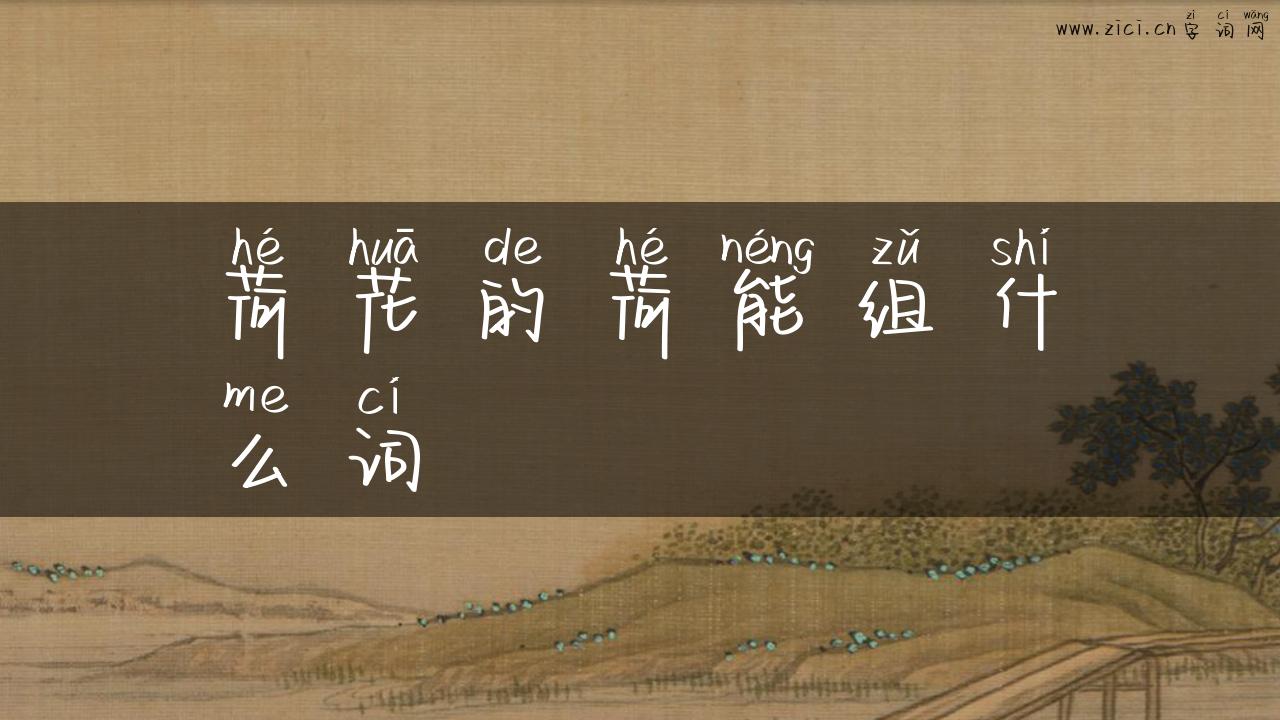 zì cí wǎng
www.zici.cn 字词网
hé huā de hé néng zǔ shí
荷花的荷能组什
me cí
么词